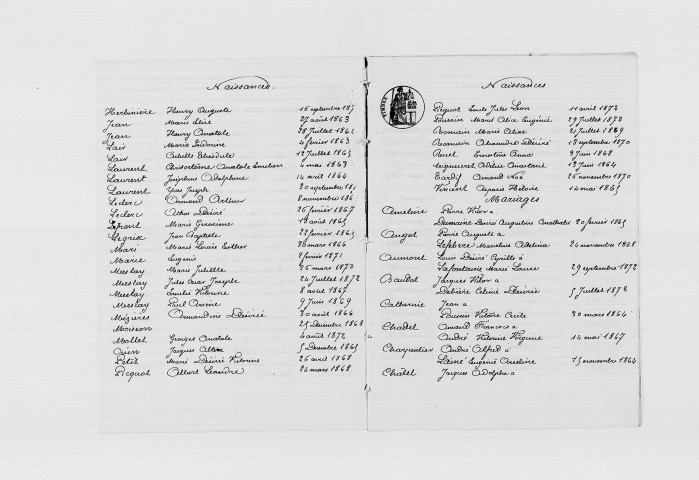 Naissances.
Herbinière Henry Auguste 16 septembre 187
Jean Marie Elise 27 août 1863
Jean Henry Anatole 28 Juillet 1864
Lair Marie Ludorine 4 février 1863
Lair 12 Juillet 1865
Laurent Anatole Emelien 4 mai 1863
Laurent Joséphine Adolphine 14 avril 1864
Laurent Yves Joseph 30 septembre 18
Leclerc Armand Arthur 8 novembre 186
Leclerc Désiré 26 février 1867
Marie 19 août 1865
Jean Baptiste 22 février 1865
Mari Marie Louise Esther 26 mars 1866
Marie Eugénie 2 février 1871
Meslay Marie Juliette 26 mars 1870
Meslay Jules César Joseph 24 Juillet 1872
Meslay Emilie Victorine 8 août 1867
Meslay Paul Arsène 9 Juin 1869
Mézières Armandine Désirée 30 août 1866
Moisson 25 Décembre 1868
Mollet Georges Anatole 4 août 1872
Jacques Albert 5 Décembre 1865
Petit Marie Désirée Victorine 26 avril 1868
Picquot Albert Léandre 24 mars 1868
Naissances
TIMBRE
Picquot Emile Jules Léon 11 avril 1872
Poussin Marie Alice Eugénie 29 Juillet 1872
Romain Marie Céline 21 Juillet 1869
Romain Alexandre Désiré 13 septembre 1870
Ruel Ernestine Anna 9 Juin 1868
13 Juin 1864
Tardif Armand Noé 26 novembre 1870
Vincent Victoire 14 mai 1865
Mariages
Ameline Pierre Victor à
Dumaine Laure Augustine 20 février 1865
Angot Pierre Auguste à
Lefebvre Marceline Albertina 24 novembre 1868
Aumont Louis Désiré Cyrille à
Lafontaine Marie Louise 29 septembre 1872
Baudot Jacques Victor à
Céline Désirée 5 Juillet 1872
Catherine Jean à
Poussin Victoire Cécile 30 mars 1864
Chatel Amand François à
André Victorine Virginie 14 mai 1867
Charpentier André Alfred à
Lainé Eugénie Ameline 15 novembre 1864
Chatel Jacques Adolphe à